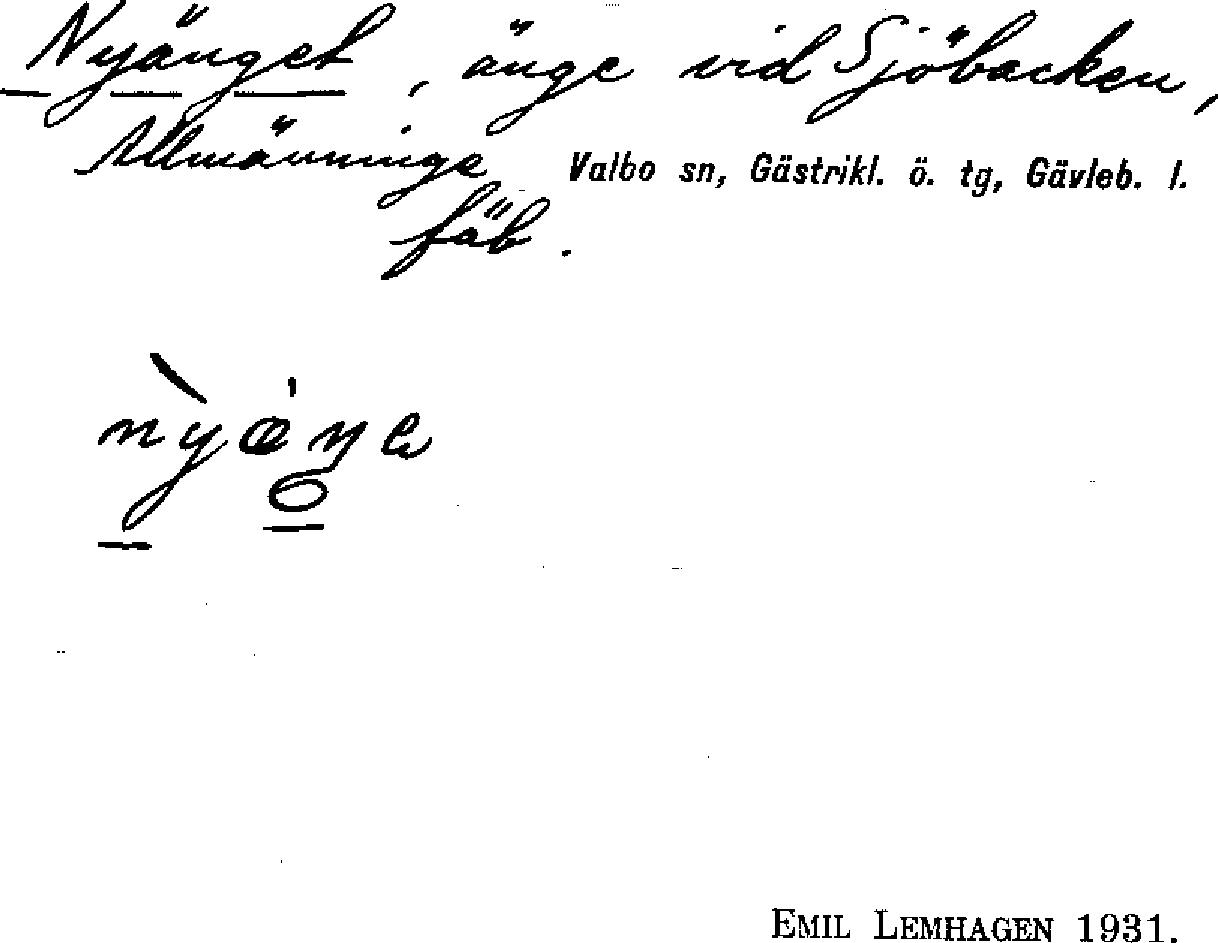 Nyänget, änge vid Sjöbacken,
Allmänninge Valbo sn, Gästrikl. ö. tg, Gävleb. l.
fäb.
EMIL LEMHAGEN 1931.